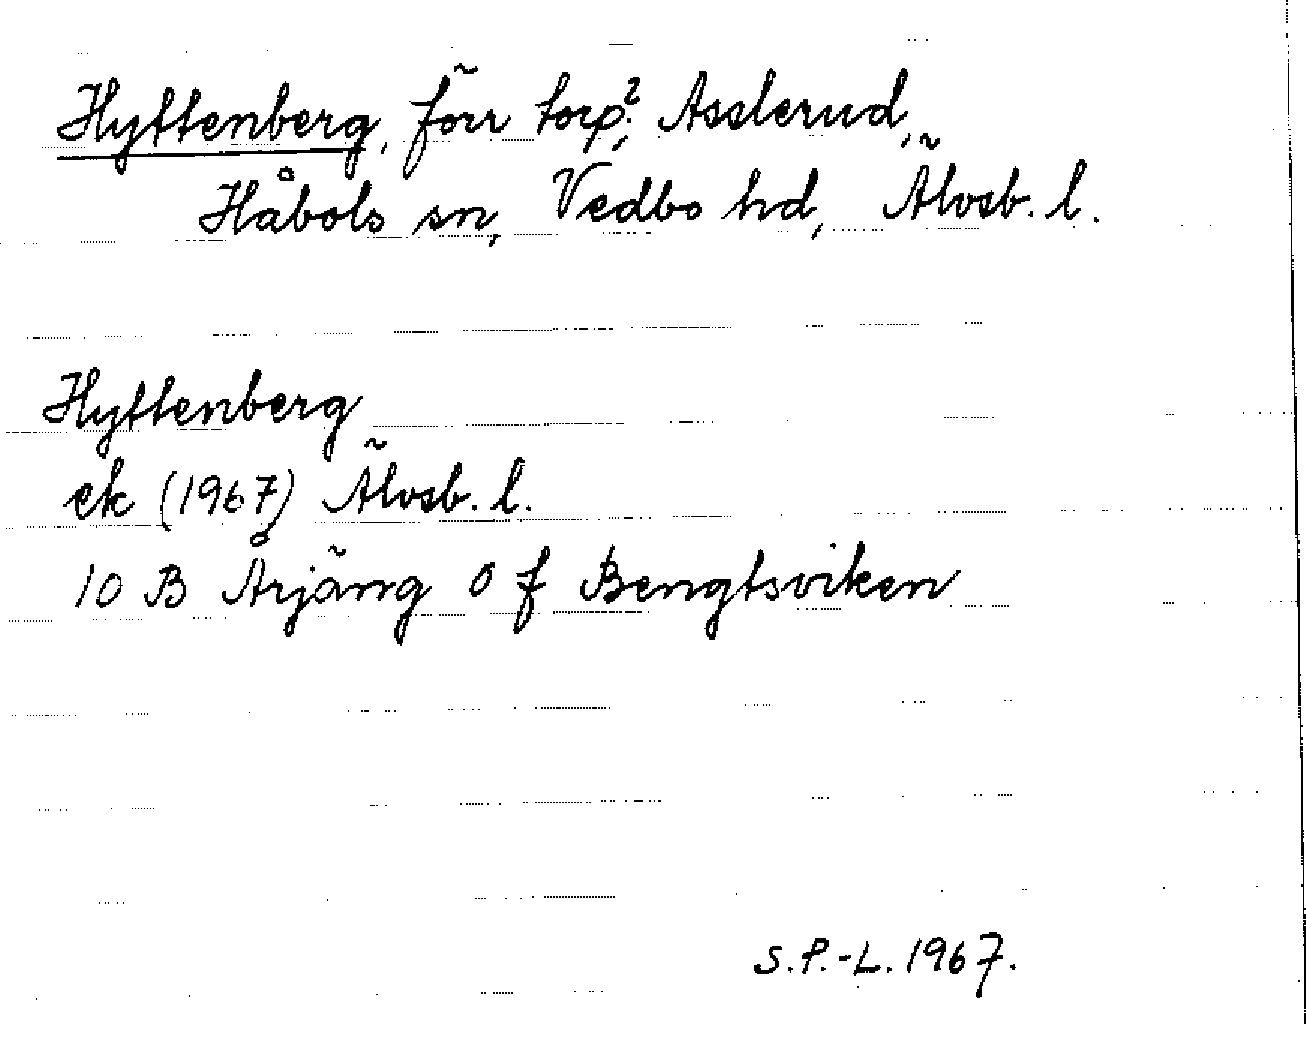 Hyttenberg, förr torp?, Asslerud,
Håbols sn, Vedbo hd, Älvsb. l.
Hyttenberg
ek (1967) Älvsb. l.
10 B Årjäng 0 f Bengtsviken
S.P.-L. 1967.